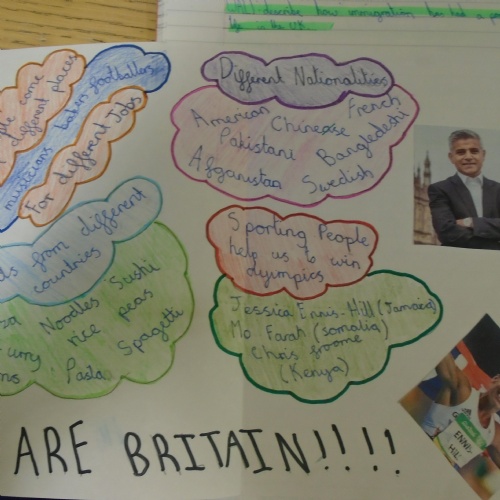 how immigration has had a
in the UK.
come
different places
musicians bakers footballers
For different Jobs
Different Nationalities
American Chineese French
Pakistani Bangladeshi
Afganistan Swedish
from different
countries
Noodles Sushi
rice peas
Pasta Spagetti
Sporting People
help us to win
olympics
Jessica Ennis-Hill (Jamaica)
Mo Farah (somalia)
Chris froome
(Kenya)
ENNIS
HILL
ARE BRITAIN!!!!